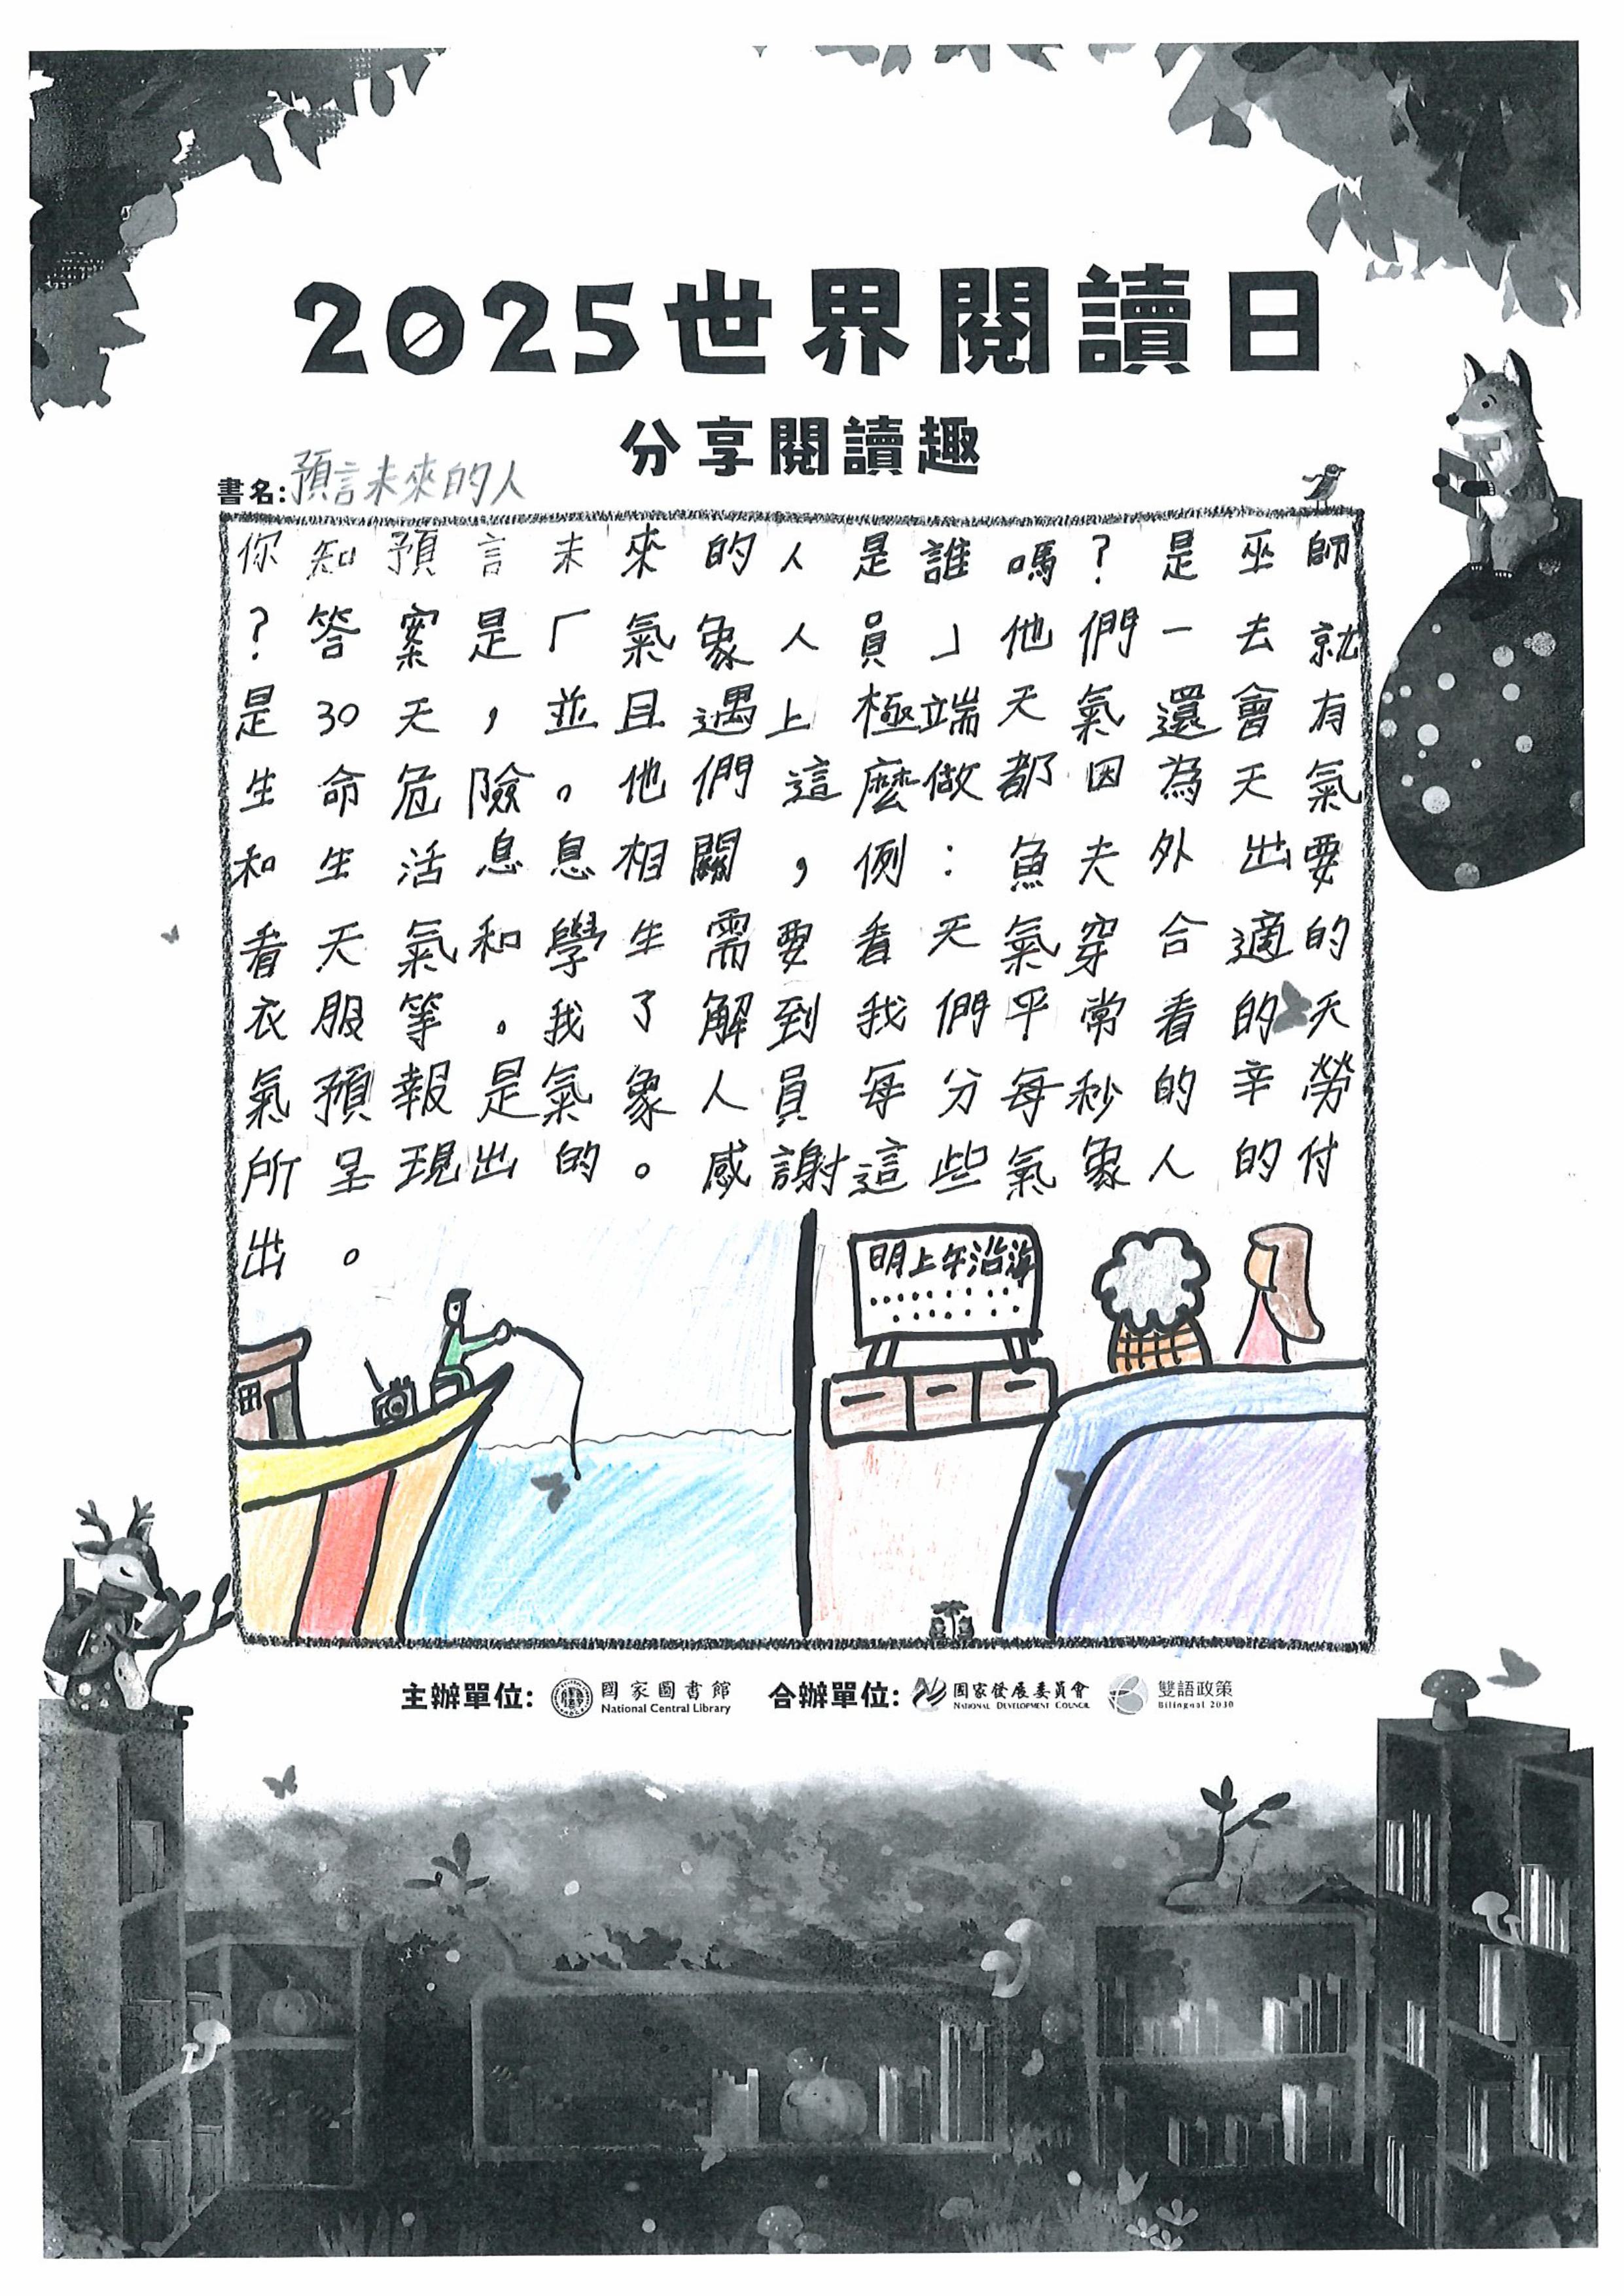 2025世界閱讀日
分享閱讀趣
書名:預言未來的人
你知預言未來的人是誰嗎?是巫師
?答案是「氣象人員」他們一去就
是30天,並且遇上極端天氣還會有
生命危險。他們這麼做都因為天氣
和生活息息相關,例:魚夫外出要
看天氣和學生需要看天氣穿合適的
衣服等。我了解到我們平常看的天
氣預報是氣象人員每分每秒的辛勞
所呈現出的。感謝這些氣象人的付
出。
明上午沿海
主辦單位: 國家圖書館 合辦單位: 國家發展委員會 雙語政策
National Central Library NATIONAL DEVELOPMENT COUNCIL Bilingual 2030